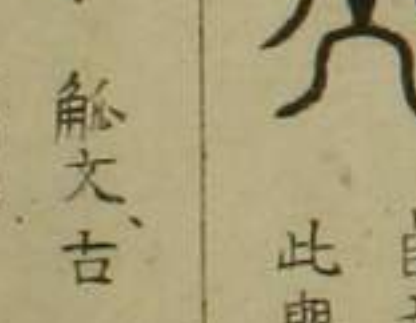 此
觚文、古